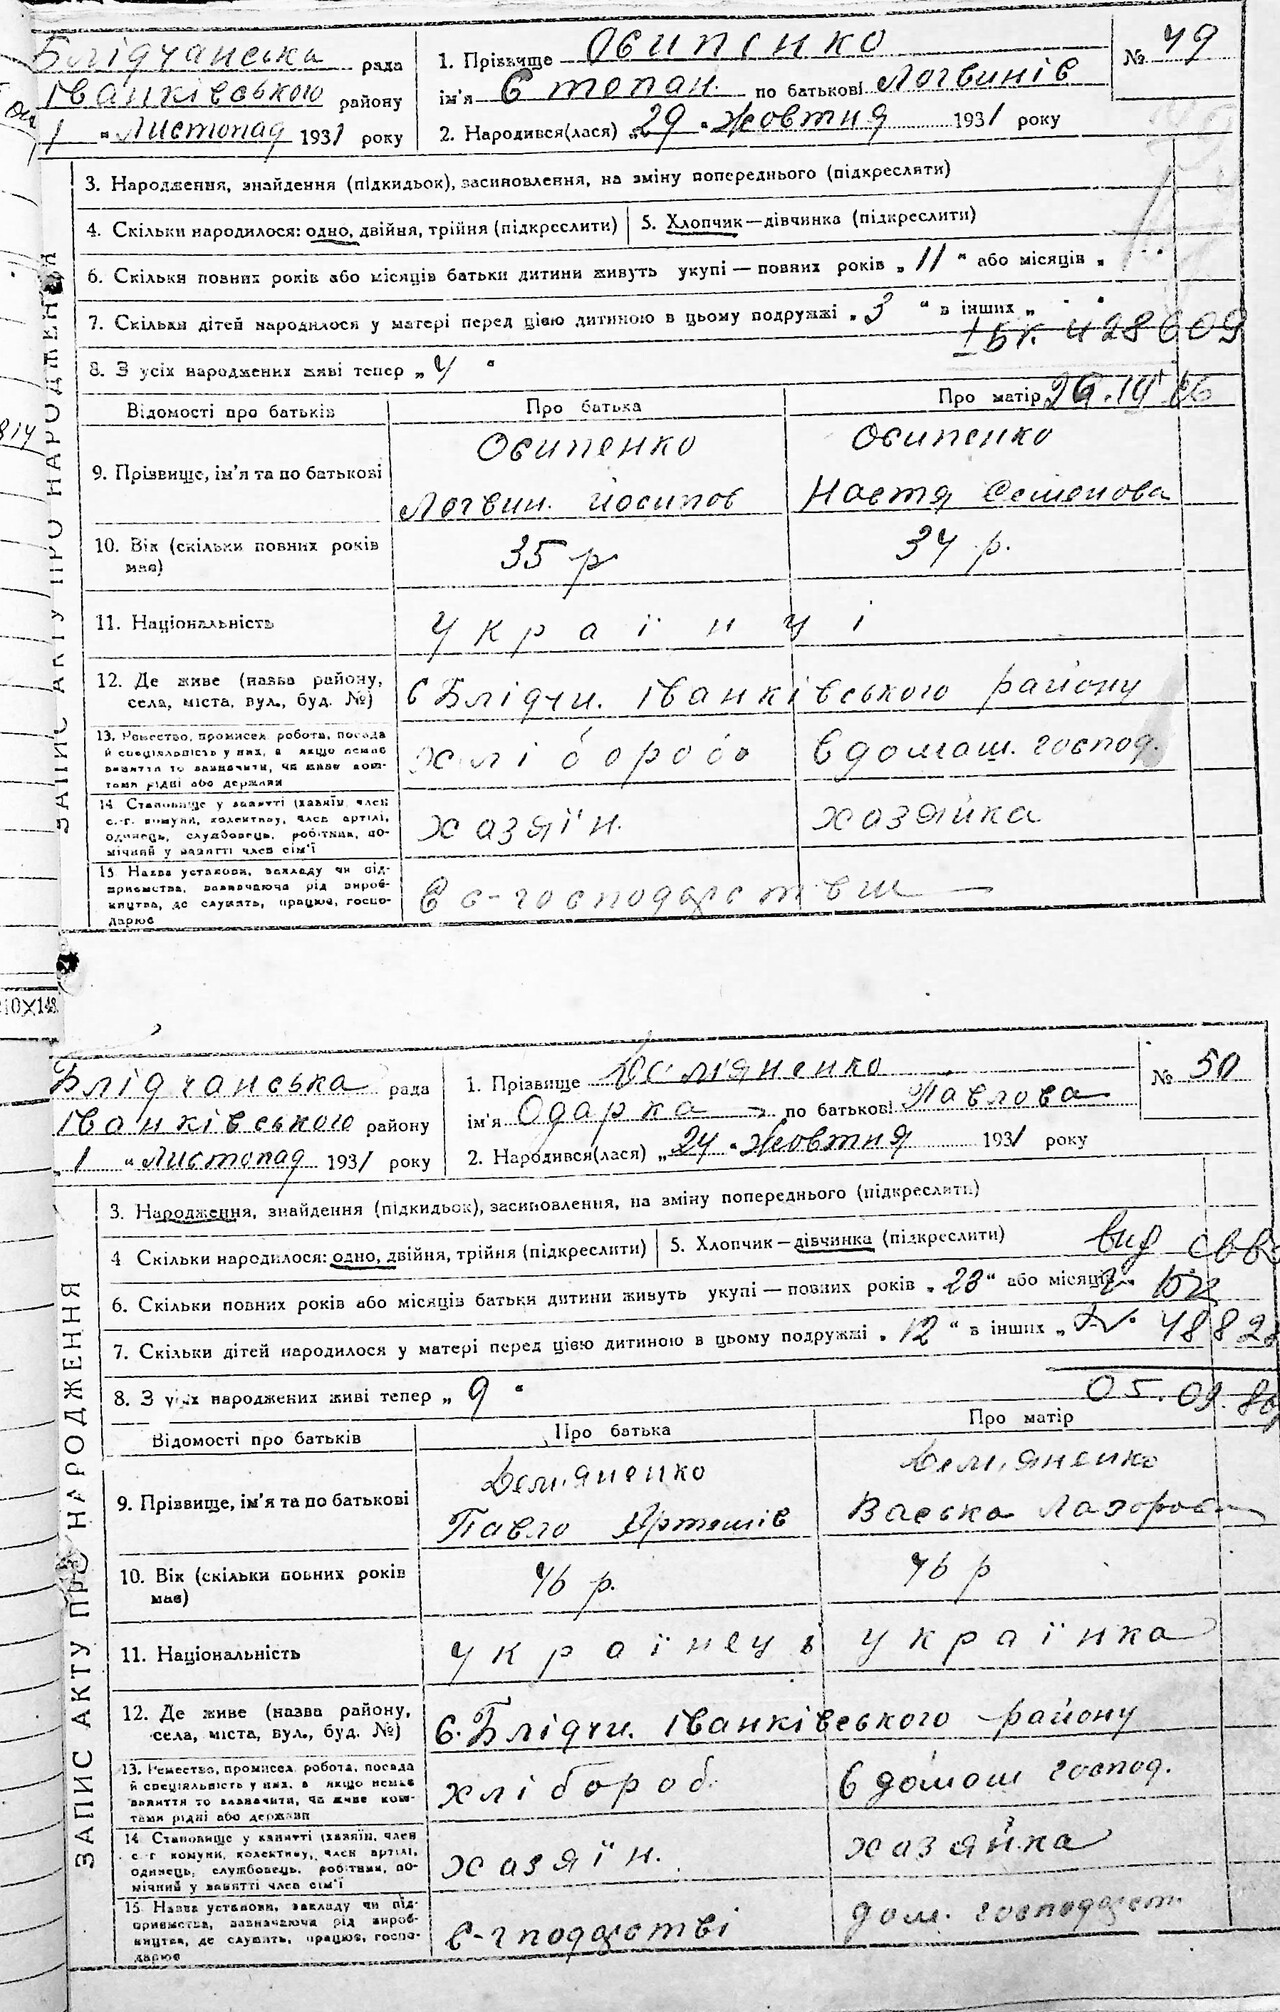 Блідчанська рада
Іванківського району
1 " Листопад 1931 року
1. Прізвище Осипенко
ім'я Степан. по батькові Логвинів
2. Народився(лася) „29 " Жовтня 1931 року
№ 49
3. Народження, знайдення (підкидьок), засиновлення, на зміну попереднього (підкреслити)
4. Скільки народилося: одно, двійня, трійня (підкреслити) 5. Хлопчик—дівчинка (підкреслити)
6. Скільки повних років або місяців батьки дитини живуть укупі — повних років „ 11 " або місяців „
7. Скільки дітей народилося у матері перед цією дитиною в цьому подружжі „ 3 " в інших „ "
428609
8. З усіх народжених живі тепер „ 4 "
Відомості про батьків Про батька Про матір
9. Прізвище, ім'я та по батькові
Осипенко Осипенко
Логвин. Йосипов Настя Семенова
10. Вік (скільки повних років має) 35 р 34 р.
11. Національність українці
12. Де живе (назва району,
села, міста, вул., буд. №)
с Блідчи. Іванківського району
13. Ремество, промисел, робота, посада
й спеціяльність у них, а якщо немає
заняття то зазначити, чи живе кош-
тами рідні або держави
хлібороб в домаш. господ.
14 Становище у занятті (хазяїн, член
с.-г. комуни, колективу, член артілі,
одинець, службовець, робітник, по-
мічний у занятті член сім'ї
хазяїн. хазяйка
15 Назва установи, закладу чи під-
приємства, зазначаючи рід вироб-
ництва, де служить, працює, госпо-
дарює
ЗАПИС АКТУ ПРО НАРОДЖЕННЯ
210X148
Блідчанська рада
Іванківського району
„ 1 " Листопад 1931 року
1. Прізвище Демʼяненко
ім'я Одарка по батькові Павлова
2. Народився(лася) „ 24 " Жовтня 1931 року
№ 50
3. Народження, знайдення (підкидьок), засиновлення, на зміну попереднього (підкреслити)
4 Скільки народилося: одно, двійня, трійня (підкреслити) 5. Хлопчик—дівчинка (підкреслити)
6. Скільки повних років або місяців батьки дитини живуть укупі — повних років „ 23 " або місяців
7. Скільки дітей народилося у матері перед цією дитиною в цьому подружжі „ 12 " в інших „
8. З усіх народжених живі тепер „ 9 "
05.09.80
Відомості про батьків Про батька Про матір
9. Прізвище, ім'я та по батькові
Демʼяненко Демʼяненко
Павло Артемів Васька Лазорова
10. Вік (скільки повних років має) 46 р. 46 р
11. Національність українець українка
12. Де живе (назва району,
села, міста, вул., буд. №)
с. Блідчи. Іванківського району
13. Ремество, промисел, робота, посада
й спеціяльність у них, а якщо немає
заняття то зазначити, чи живе кош-
тами рідні або держави
хлібороб. в домаш господ.
14 Становище у занятті (хазяїн, член
с.-г комуни, колективу, член артілі,
одинець, службовець, робітник, по-
мічний у занятті член сім'ї
хазяїн. хазяйка
15. Назва установи, закладу чи під-
приємства, зазначаючи рід вироб-
ництва, де служить, працює, госпо-
дарює
дом. господарст.
ЗАПИС АКТУ ПРО НАРОДЖЕННЯ